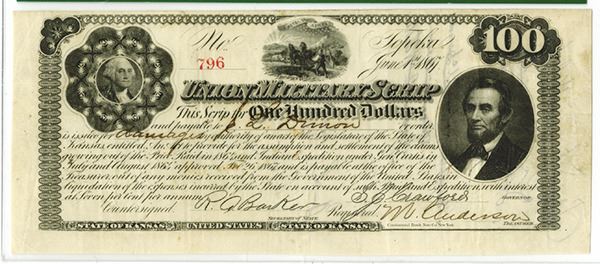 No. Topeka 100
796 June 1st 1867
UNION MILITARY SCRIP
This Scrip for One Hundred Dollars
and payable to
is issued for damages under authority of an act of the Legislature of the State of
Kansas, entitled An Act to provide for the assumption and settlement of the claims
growing out of the Price Raid in 1864 and Indian Expedition under Gen. Curtis in
July and August 1864, approved 1867 and is payable at the office of the
Treasurer out of any moneys received from the Government of the United States in
liquidation of the expenses incurred by the State on account of such Raid and Expedition, with interest
at Seven per cent per annum. S. J. Crawford GOVERNOR
Countersigned. R. A. Barker SECRETARY OF STATE Registered M. Anderson TREASURER
STATE OF KANSAS UNITED STATES STATE OF KANSAS Continental Bank Note Co. New York